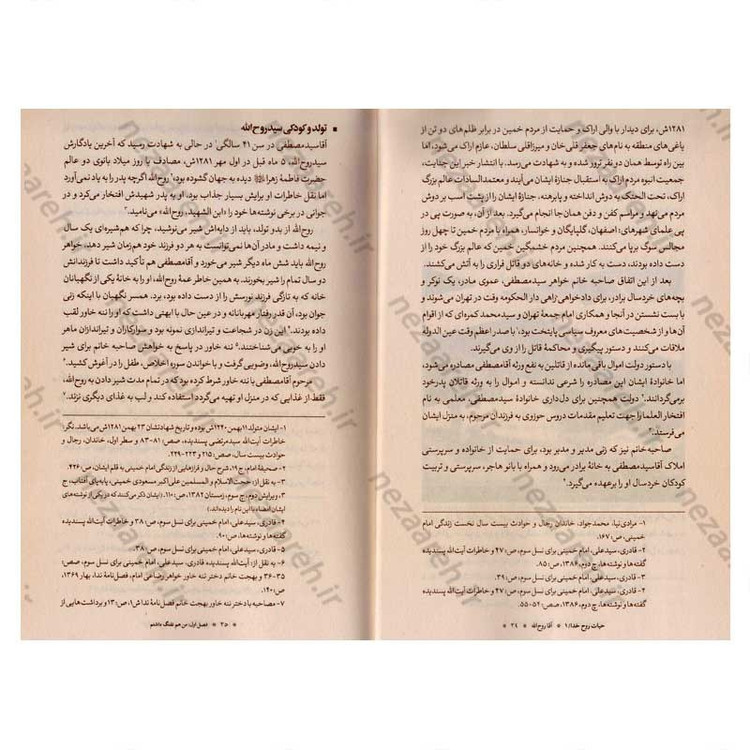 ۱۲۸۱ش، برای دیدار با والی اراک و حمایت از مردم خمین در برابر ظلم‌های دو تن از
یاغی‌های منطقه به نام‌های جعفر قلی‌خان و میرزاقلی سلطان، عازم اراک می‌شود، اما
بین راه توسط همان دو نفر ترور شده و به شهادت می‌رسد. با انتشار خبر این جنایت،
جمعیت انبوه مردم اراک به استقبال جنازهٔ ایشان می‌آیند و معتمدالسادات عالم بزرگ
اراک، تحت الحنک به دوش انداخته و پابرهنه، جنازهٔ ایشان را از پشت اسب بر دوش
مردم می‌نهد و مراسم کفن و دفن همان‌جا انجام می‌گیرد. بعد از آن، به صورت پی در
پی علمای شهرهای؛ اصفهان، گلپایگان و خوانسار، همراه با مردم خمین تا چهل روز
مجالس سوگ برپا می‌کنند. همچنین مردم خشمگین خمین که عالم بزرگ خود را از
دست داده بودند، دست به کار شده و خانه‌های دو قاتل فراری را به آتش می‌کشند.
بعد از این اتفاق صاحبه خانم خواهر سیدمصطفی، عموی مادر، یک نوکر و
بچه‌های خردسال برادر، برای دادخواهی راهی دار الحکومه وقت در تهران می‌شوند و
با بست نشستن در آنجا و همکاری امام جمعهٔ تهران و سیدمحمد کمره‌ای که از اقوام
آن‌ها و از شخصیت‌های معروف سیاسی پایتخت بود، با صدر اعظم وقت عین الدوله
ملاقات می‌کنند و دستور پیگیری و محاکمهٔ قاتل را از وی می‌گیرند.
با دستور دولت اموال باقی‌مانده از قاتلین به نفع ورثه آقامصطفی مصادره می‌شود،
اما خانوادهٔ ایشان این مصادره را شرعی ندانسته و اموال را به ورثه قاتلان پدر خود
برمی‌گردانند.² دولت همچنین برای دل‌داری خانوادهٔ سیدمصطفی، معلمی به نام
افتخار العلما را جهت تعلیم مقدمات دروس حوزوی به فرزندان مرحوم، به منزل ایشان
می‌فرستد.
صاحبه خانم نیز که زنی مدیر و مدبر بود، برای حمایت از خانواده و سرپرستی
املاک آقاسیدمصطفی به خانهٔ برادر می‌رود و همراه با بانو هاجر، سرپرستی و تربیت
کودکان خردسال او را برعهده می‌گیرد.
۱- مرادی‌نیا، محمدجواد، خاندان رجال و حوادث بیست سال نخست زندگی امام
خمینی، ص۱۶۷.
۲- قادری، سیدعلی، امام خمینی برای نسل سوم، ص۲۷ و خاطرات آیت‌الله پسندیده
گفته‌ها و نوشته‌ها، چ دوم، ۱۳۸۶، ص۸۵.
۳- قادری، سیدعلی، امام خمینی برای نسل سوم، ص۳۹.
۴- قادری، سیدعلی، امام خمینی برای نسل سوم، ص۲۷ و خاطرات آیت‌الله پسندیده
گفته‌ها و نوشته‌ها، چ دوم، ۱۳۸۶، صص۵۴-۵۵.
حیات روح خدا/۱ * آقا روح‌الله * ۲۴
تولد و کودکی سیدروح‌الله
آقاسیدمصطفی در سن ۴۱ سالگی¹ در حالی به شهادت رسید که آخرین یادگارش
سیدروح‌الله، ۵ ماه قبل در اول مهر ۱۲۸۱ش، مصادف با روز میلاد بانوی دو عالم
حضرت فاطمهٔ زهرا دیده به جهان گشوده بود.² روح‌الله اگرچه پدر را به یاد نمی‌آورد
اما نقل خاطرات او برایش بسیار جذاب بود. او به پدر شهیدش افتخار می‌کرد و در
جوانی در برخی نوشته‌ها خود را «ابن الشهید، روح‌الله» می‌نامید.³
روح‌الله از بدو تولد، باید از دایه‌اش شیر می‌نوشید، چرا که هم‌شیره‌ای یک سال
و نیمه داشت و مادر آن‌ها نمی‌توانست به هر دو فرزند خود هم‌زمان شیر دهد. خواهر
روح‌الله باید شش ماه دیگر شیر می‌خورد و آقامصطفی هم تأکید داشت تا فرزندانش
دو سال تمام را شیر بخورند. به همین خاطر عمهٔ روح‌الله، او را به خانهٔ یکی از نگهبانان
خانه که به تازگی فرزند نورسش را از دست داده بود، برد. همسر نگهبان با اینکه زنی
جوان بود، آن قدر رفتار مهربانانه و در عین حال با ابهتی داشت که او را ننه خاور لقب
داده بودند.⁴ این زن در شجاعت و تیراندازی نمونه بود و سوارکاران و تیراندازان ماهر
او را به خوبی می‌شناختند.⁵ ننه خاور در پاسخ به خواهش صاحبه خانم برای شیر
دادن سیدروح‌الله، وضویی گرفت و با خواندن سوره اخلاص، طفل را در آغوش کشید.⁶
مرحوم آقامصطفی با ننه خاور شرط کرده بود که در تمام مدت شیر دادن به روح‌الله،
فقط از غذایی که در منزل او تهیه می‌گردد استفاده کند و لب به غذای دیگری نزند.⁷
۱- ایشان متولد ۱۱ بهمن ۱۲۴۰ش بوده و تاریخ شهادتشان ۲۳ بهمن ۱۲۸۱ش می‌باشد. نگر؛
خاطرات آیت‌الله سیدمرتضی پسندیده، صص۸۱-۸۳ و سطر اول، خاندان، رجال و
حوادث بیست سال، صص۲۱۵ و ۲۲۳-۲۲۹.
۲- صحیفهٔ امام، ج۱۹، شرح حال و فرازهایی از زندگی امام خمینی به قلم ایشان، ص۴۲۶.
۳- به نقل از: حجت الاسلام و المسلمین علی‌اکبر مسعودی خمینی، پابه‌پای آفتاب، ج
۳، ویرایش دوم، چ سوم، زمستان ۱۳۸۲، ص۱۱۰. (ایشان ذکر می‌کنند که در یکی از نوشته‌های
ایشان امضاء با این نام را دیده‌اند.)
۴- قادری، سیدعلی، امام خمینی برای نسل سوم، ص۳۸ و خاطرات آیت‌الله پسندیده
گفته‌ها و نوشته‌ها، ص۹۰.
۵- قادری، سیدعلی، امام خمینی برای نسل سوم، ص۳۸.
۶- به نقل از؛ آیت‌الله پسندیده، قادری، سیدعلی، امام خمینی برای نسل سوم، صص
۳۵-۳۶ و بهجت خانم دختر ننه خاور خواهر رضاعی امام، فصل‌نامهٔ ندا، بهار ۱۳۶۹،
ص۱۲۰.
۷- مصاحبه با دختر ننه خاور بهجت خانم فصل‌نامهٔ ندا ش۱، ص۱۳۰ و برداشت‌هایی از
۲۵ * فصل اول: من هم تفنگ داشتم
nezaareh.ir